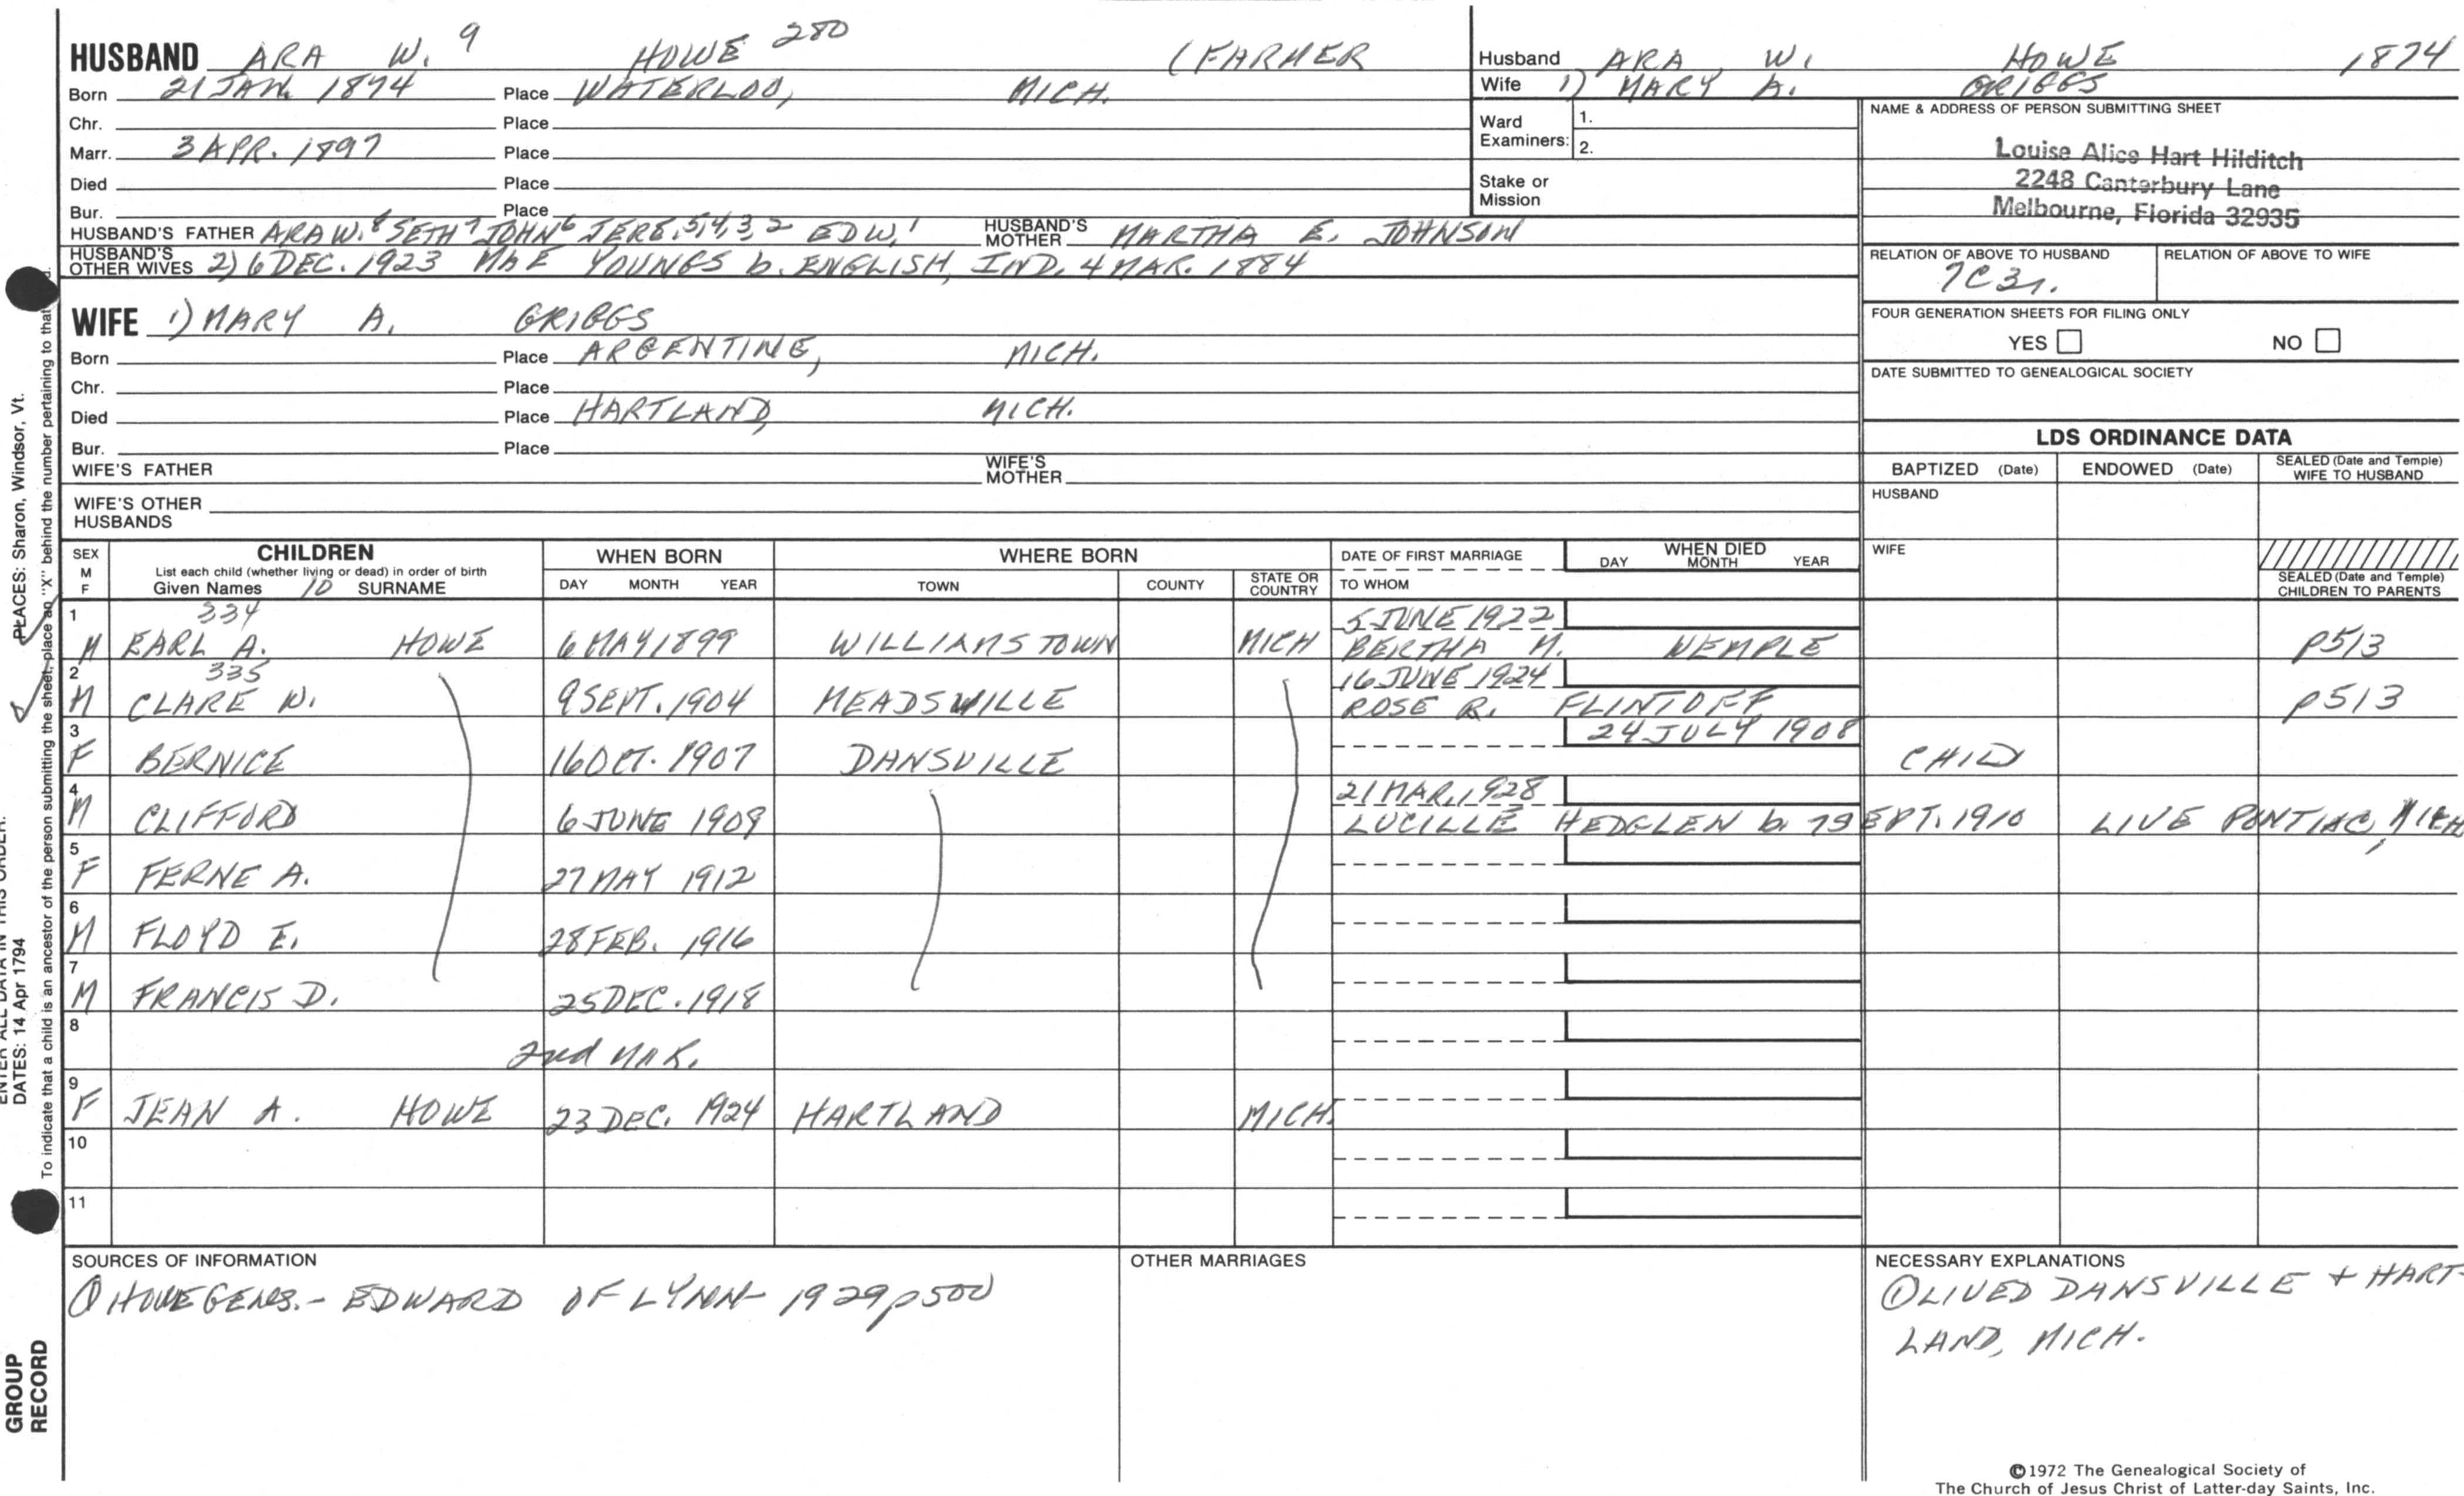 HUSBAND ARA W. 9 HOWE 280 (FARMER
Born 21 JAN. 1874 Place WATERLOO, MICH.
Chr. Place
Marr. 3 APR. 1897 Place
Died Place
Bur. Place
HUSBAND'S FATHER ARA W. 8 SETH 7 JOHN 6 JERE. 5,4,3,2 EDW. 1 HUSBAND'S MOTHER MARTHA E. JOHNSON
HUSBAND'S OTHER WIVES 2) 6 DEC. 1923 MAE YOUNGS b. ENGLISH, IND. 4 MAR. 1884
Husband ARA W. HOWE 1874
Wife 1) MARY A. GRIGGS
Ward Examiners: 1.
2.
Stake or Mission
NAME & ADDRESS OF PERSON SUBMITTING SHEET
Louise Alice Hart Hilditch
2248 Canterbury Lane
Melbourne, Florida 32935
RELATION OF ABOVE TO HUSBAND RELATION OF ABOVE TO WIFE
7C3r.
FOUR GENERATION SHEETS FOR FILING ONLY
YES NO
DATE SUBMITTED TO GENEALOGICAL SOCIETY
WIFE 1) MARY A. GRIGGS
Born Place ARGENTINE, MICH.
Chr. Place
Died Place HARTLAND, MICH.
Bur. Place
WIFE'S FATHER WIFE'S MOTHER
WIFE'S OTHER HUSBANDS
LDS ORDINANCE DATA
BAPTIZED (Date) ENDOWED (Date) SEALED (Date and Temple) WIFE TO HUSBAND
HUSBAND
WIFE
SEALED (Date and Temple) CHILDREN TO PARENTS
SEX M F CHILDREN WHEN BORN WHERE BORN DATE OF FIRST MARRIAGE WHEN DIED
List each child (whether living or dead) in order of birth
Given Names 10 SURNAME DAY MONTH YEAR TOWN COUNTY STATE OR COUNTRY TO WHOM DAY MONTH YEAR
1 334 5 JUNE 1922
M EARL A. HOWE 6 MAY 1899 WILLIAMSTOWN MICH BERTHA M. WEMPLE p513
2 335 16 JUNE 1924
M CLARE W. 9 SEPT. 1904 MEADSVILLE ROSE R. FLINTOFF p513
3 24 JULY 1908
F BERNICE 16 OCT. 1907 DANSVILLE CHILD
4 21 MAR. 1928
M CLIFFORD 6 JUNE 1909 LUCILLE HEDGLEN b. 7 SEPT. 1910 LIVE PONTIAC, MICH
5
F FERNE A. 27 MAY 1912
6
M FLOYD E. 28 FEB. 1916
7
M FRANCIS D. 25 DEC. 1918
8
2nd MAR.
9
F JEAN A. HOWE 23 DEC. 1924 HARTLAND MICH.
10
11
SOURCES OF INFORMATION
① HOWE GENS. - EDWARD OF LYNN - 1929 p500
OTHER MARRIAGES
NECESSARY EXPLANATIONS
① LIVED DANSVILLE + HART-
LAND, MICH.
©1972 The Genealogical Society of
The Church of Jesus Christ of Latter-day Saints, Inc.
PLACES: Sharon, Windsor, Vt.
To indicate that a child is an ancestor of the person submitting the sheet, place an "X" behind the number pertaining to that
ENTER ALL DATA IN THIS ORDER:
DATES: 14 Apr 1794
GROUP
RECORD